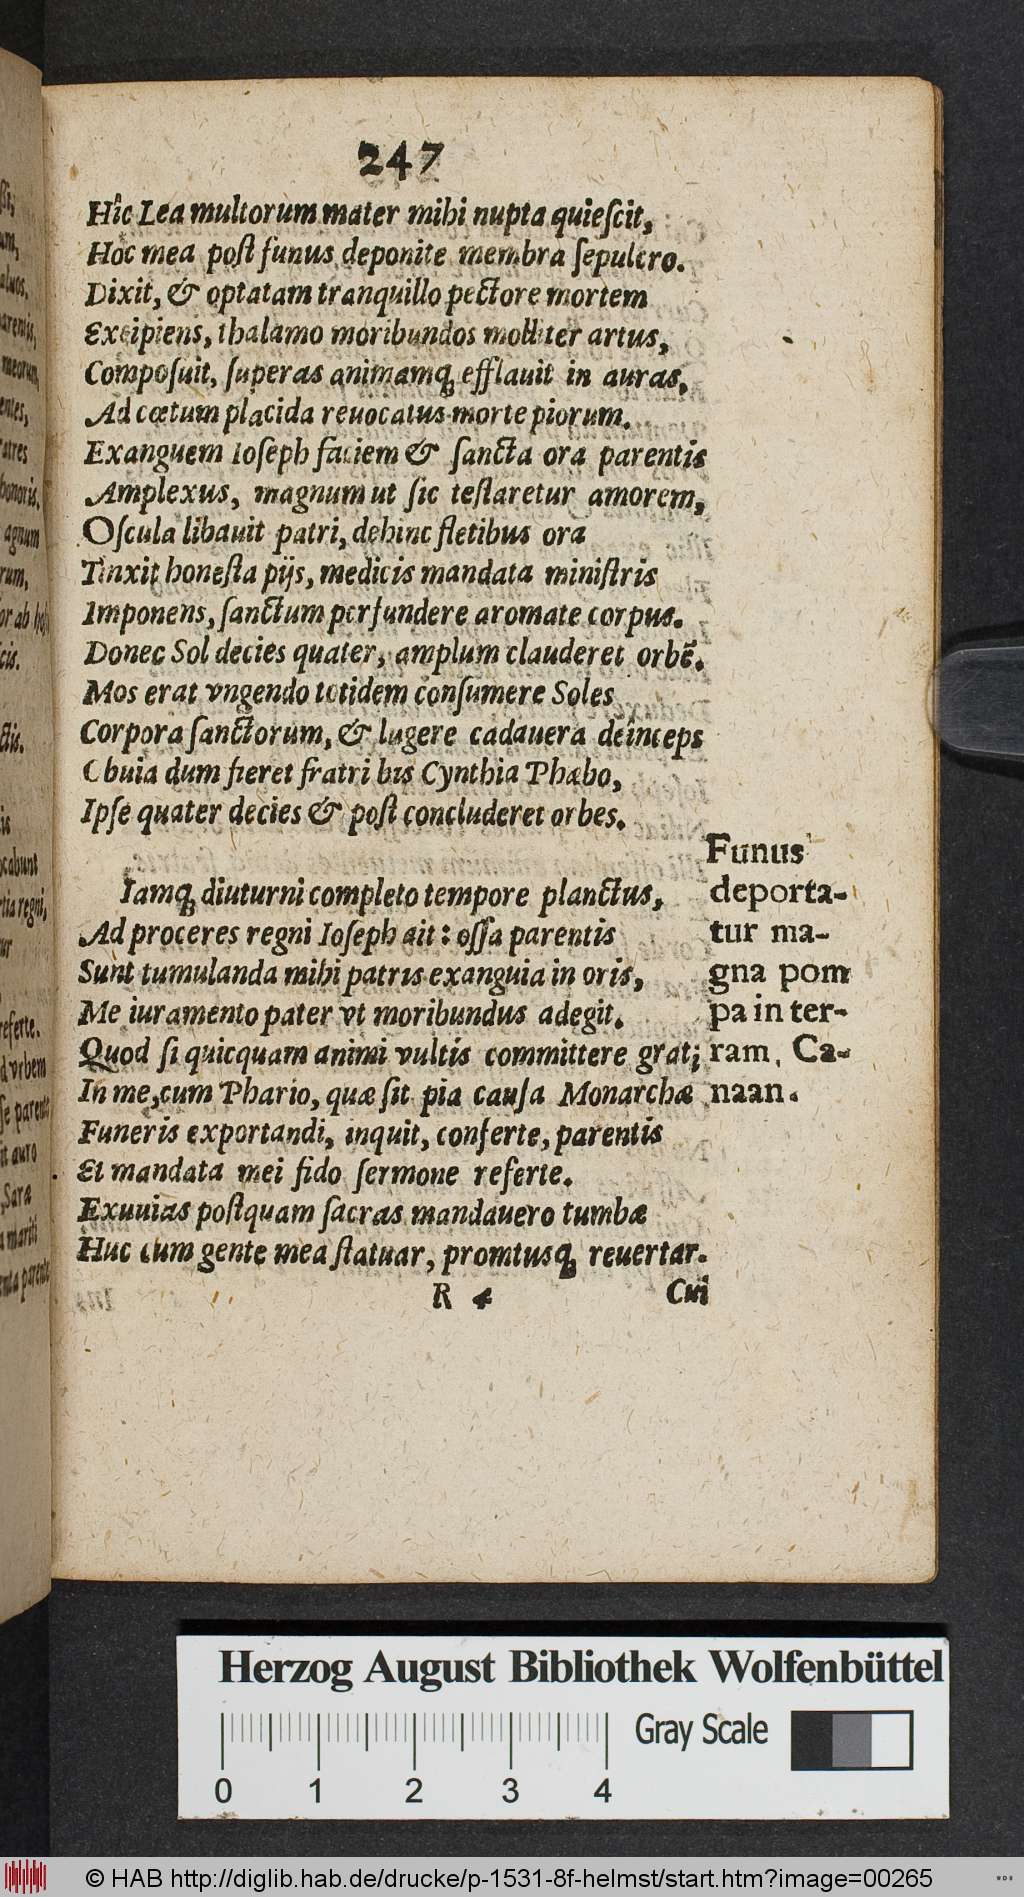 247
Hîc Lea multorum mater mihi nupta quieſcit,
Hoc mea poſt funus deponite membra ſepulcro.
Dixit, & optatam tranquillo pectore mortem
Excipiens, thalamo moribundos molliter artus,
Compoſuit, ſuperas animamq́; efflauit in auras,
Ad cœtum placida reuocatus morte piorum.
Exanguem Ioſeph faciem & ſancta ora parentis
Amplexus, magnum ut ſic teſtaretur amorem,
Oſcula libauit patri, dehinc fletibus ora
Tinxit honeſta pijs, medicis mandata miniſtris
Imponens, ſanctum perfundere aromate corpus.
Donec Sol decies quater, amplum clauderet orbē.
Mos erat vngendo totidem conſumere Soles
Corpora ſanctorum, & lugere cadauera deinceps
Obuia dum fieret fratri bis Cynthia Phæbo,
Ipſe quater decies & poſt concluderet orbes.
Iamq́; diuturni completo tempore planctus,
Ad proceres regni Ioſeph ait: oſſa parentis
Sunt tumulanda mihi patris exanguia in oris,
Me iuramento pater vt moribundus adegit.
Quod ſi quicquam animi vultis committere grati
In me, cum Phario, quæ ſit pia cauſa Monarchæ
Funeris exportandi, inquit, conferte, parentis
Et mandata mei fido ſermone referte.
Exuuias poſtquam ſacras mandauero tumbæ
Huc cum gente mea ſtatuar, promtusq́; reuertar.
Funus
deporta-
tur ma-
gna pom
pa in ter-
ram, Ca-
naan.
R 4
Cui
Herzog August Bibliothek Wolfenbüttel
Gray Scale
0 1 2 3 4
© HAB http://diglib.hab.de/drucke/p-1531-8f-helmst/start.htm?image=00265